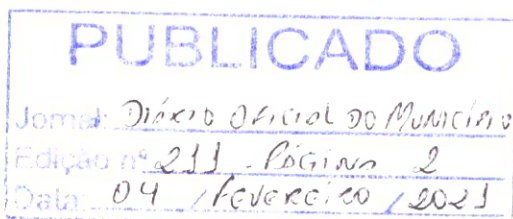 PUBLICADO
Jornal: Diário Oficial do Município
Edição nº 211 - Página 2
Data 04 / Fevereiro / 2021